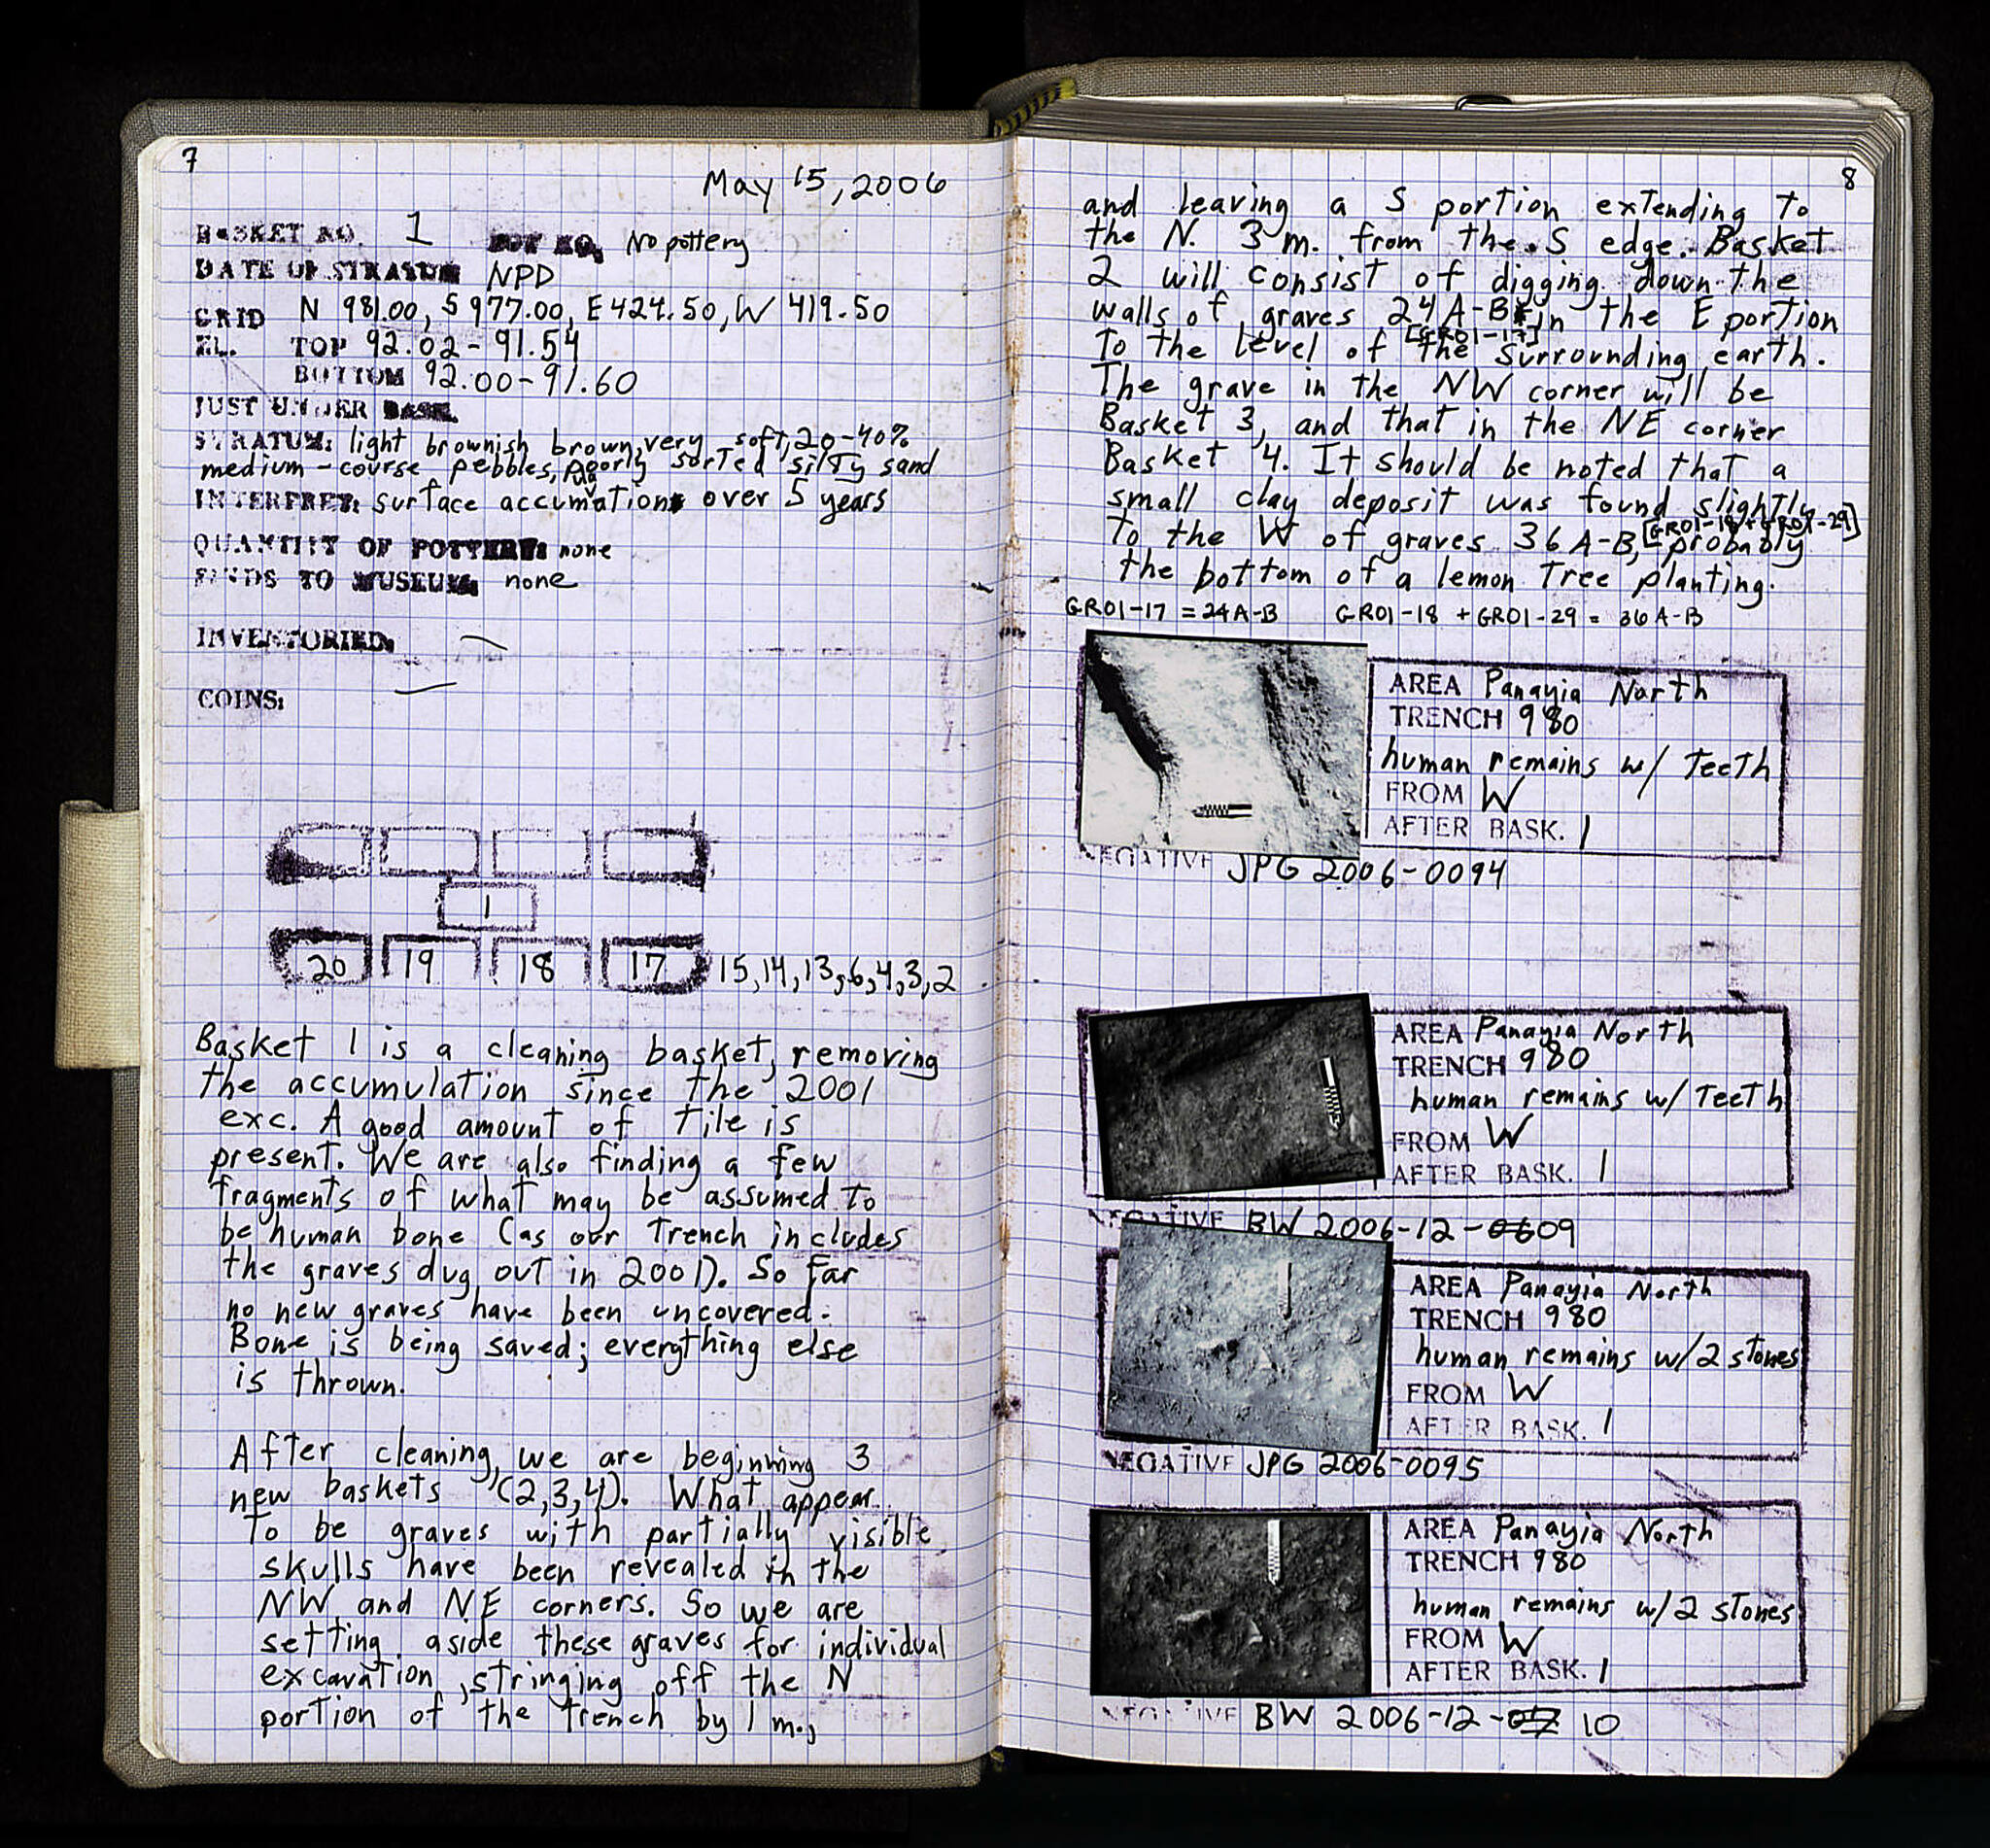 7
May 15, 2006
BASKET NO. 1 LOT NO. No pottery
DATE OF STRATUM NPD
GRID N 981.00, S 977.00, E 424.50, W 419.50
EL. TOP 92.02-91.54
BOTTOM 92.00-91.60
JUST UNDER BASK.
STRATUM: light brownish brown, very soft, 20-40%
medium-course pebbles, poorly sorted silty sand
INTERPRET: surface accumation over 5 years
QUANTITY OF POTTERY: none
FINDS TO MUSEUM: none
INVENTORIED: —
COINS: —
1
20 19 18 17 15, 14, 13, 6, 4, 3, 2
Basket 1 is a cleaning basket, removing
the accumulation since the 2001
exc. A good amount of tile is
present. We are also finding a few
fragments of what may be assumed to
be human bone (as our trench includes
the graves dug out in 2001). So far
no new graves have been uncovered.
Bone is being saved; everything else
is thrown.
After cleaning, we are beginning 3
new baskets (2,3,4). What appear
to be graves with partially visible
skulls have been revealed in the
NW and NE corners. So we are
setting aside these graves for individual
excavation, stringing off the N
portion of the trench by 1 m.,
8
and leaving a S portion extending to
the N. 3 m. from the S edge. Basket
2 will consist of digging down the
walls of graves 24 A-B in the E portion
[GR01-17]
to the level of the surrounding earth.
The grave in the NW corner will be
Basket 3, and that in the NE corner
Basket 4. It should be noted that a
small clay deposit was found slightly
[GR01-18 + GR01-29]
to the W of graves 36 A-B, probably
the bottom of a lemon tree planting.
GR01-17 = 24A-B GR01-18 + GR01-29 = 36 A-B
AREA Panayia North
TRENCH 980
human remains w/ teeth
FROM W
AFTER BASK. 1
NEGATIVE JPG 2006-0094
AREA Panayia North
TRENCH 980
human remains w/ teeth
FROM W
AFTER BASK. 1
NEGATIVE BW 2006-12-09
AREA Panayia North
TRENCH 980
human remains w/ 2 stones
FROM W
AFTER BASK. 1
NEGATIVE JPG 2006-0095
AREA Panayia North
TRENCH 980
human remains w/ 2 stones
FROM W
AFTER BASK. 1
NEGATIVE BW 2006-12-10